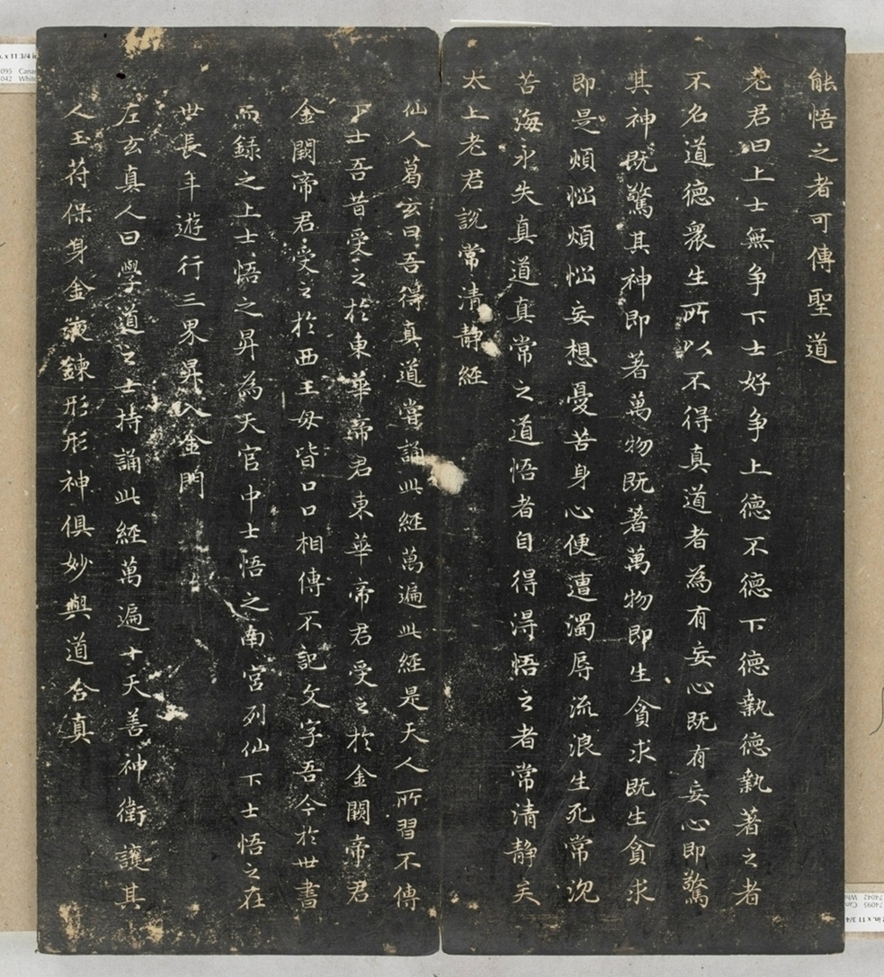 能悟之者可傳聖道
老君曰上士無争下士好争上德不德下德執德執著之者
不名道德衆生所以不得真道者為有妄心既有妄心即驚
其神既驚其神即著萬物既著萬物即生貪求既生貪求
即是煩惱煩惱妄想憂苦身心便遭濁辱流浪生死常沈
苦海永失真道真常之道悟者自得淂悟之者常清静矣
太上老君說常清静經
仙人葛玄曰吾得真道嘗誦此經萬遍此經是天人所習不傳
下士吾昔受之於東華帝君東華帝君受之於金闕帝君
金闕帝君受之於西王母皆口口相傳不記文字吾今於世書
而録之上士悟之昇為天官中士悟之南宮列仙下士悟之在
世長年遊行三界昇入金門
左玄真人曰學道之士持誦此經萬遍十天善神衛護其
人玉符保身金液鍊形形神俱妙與道合真